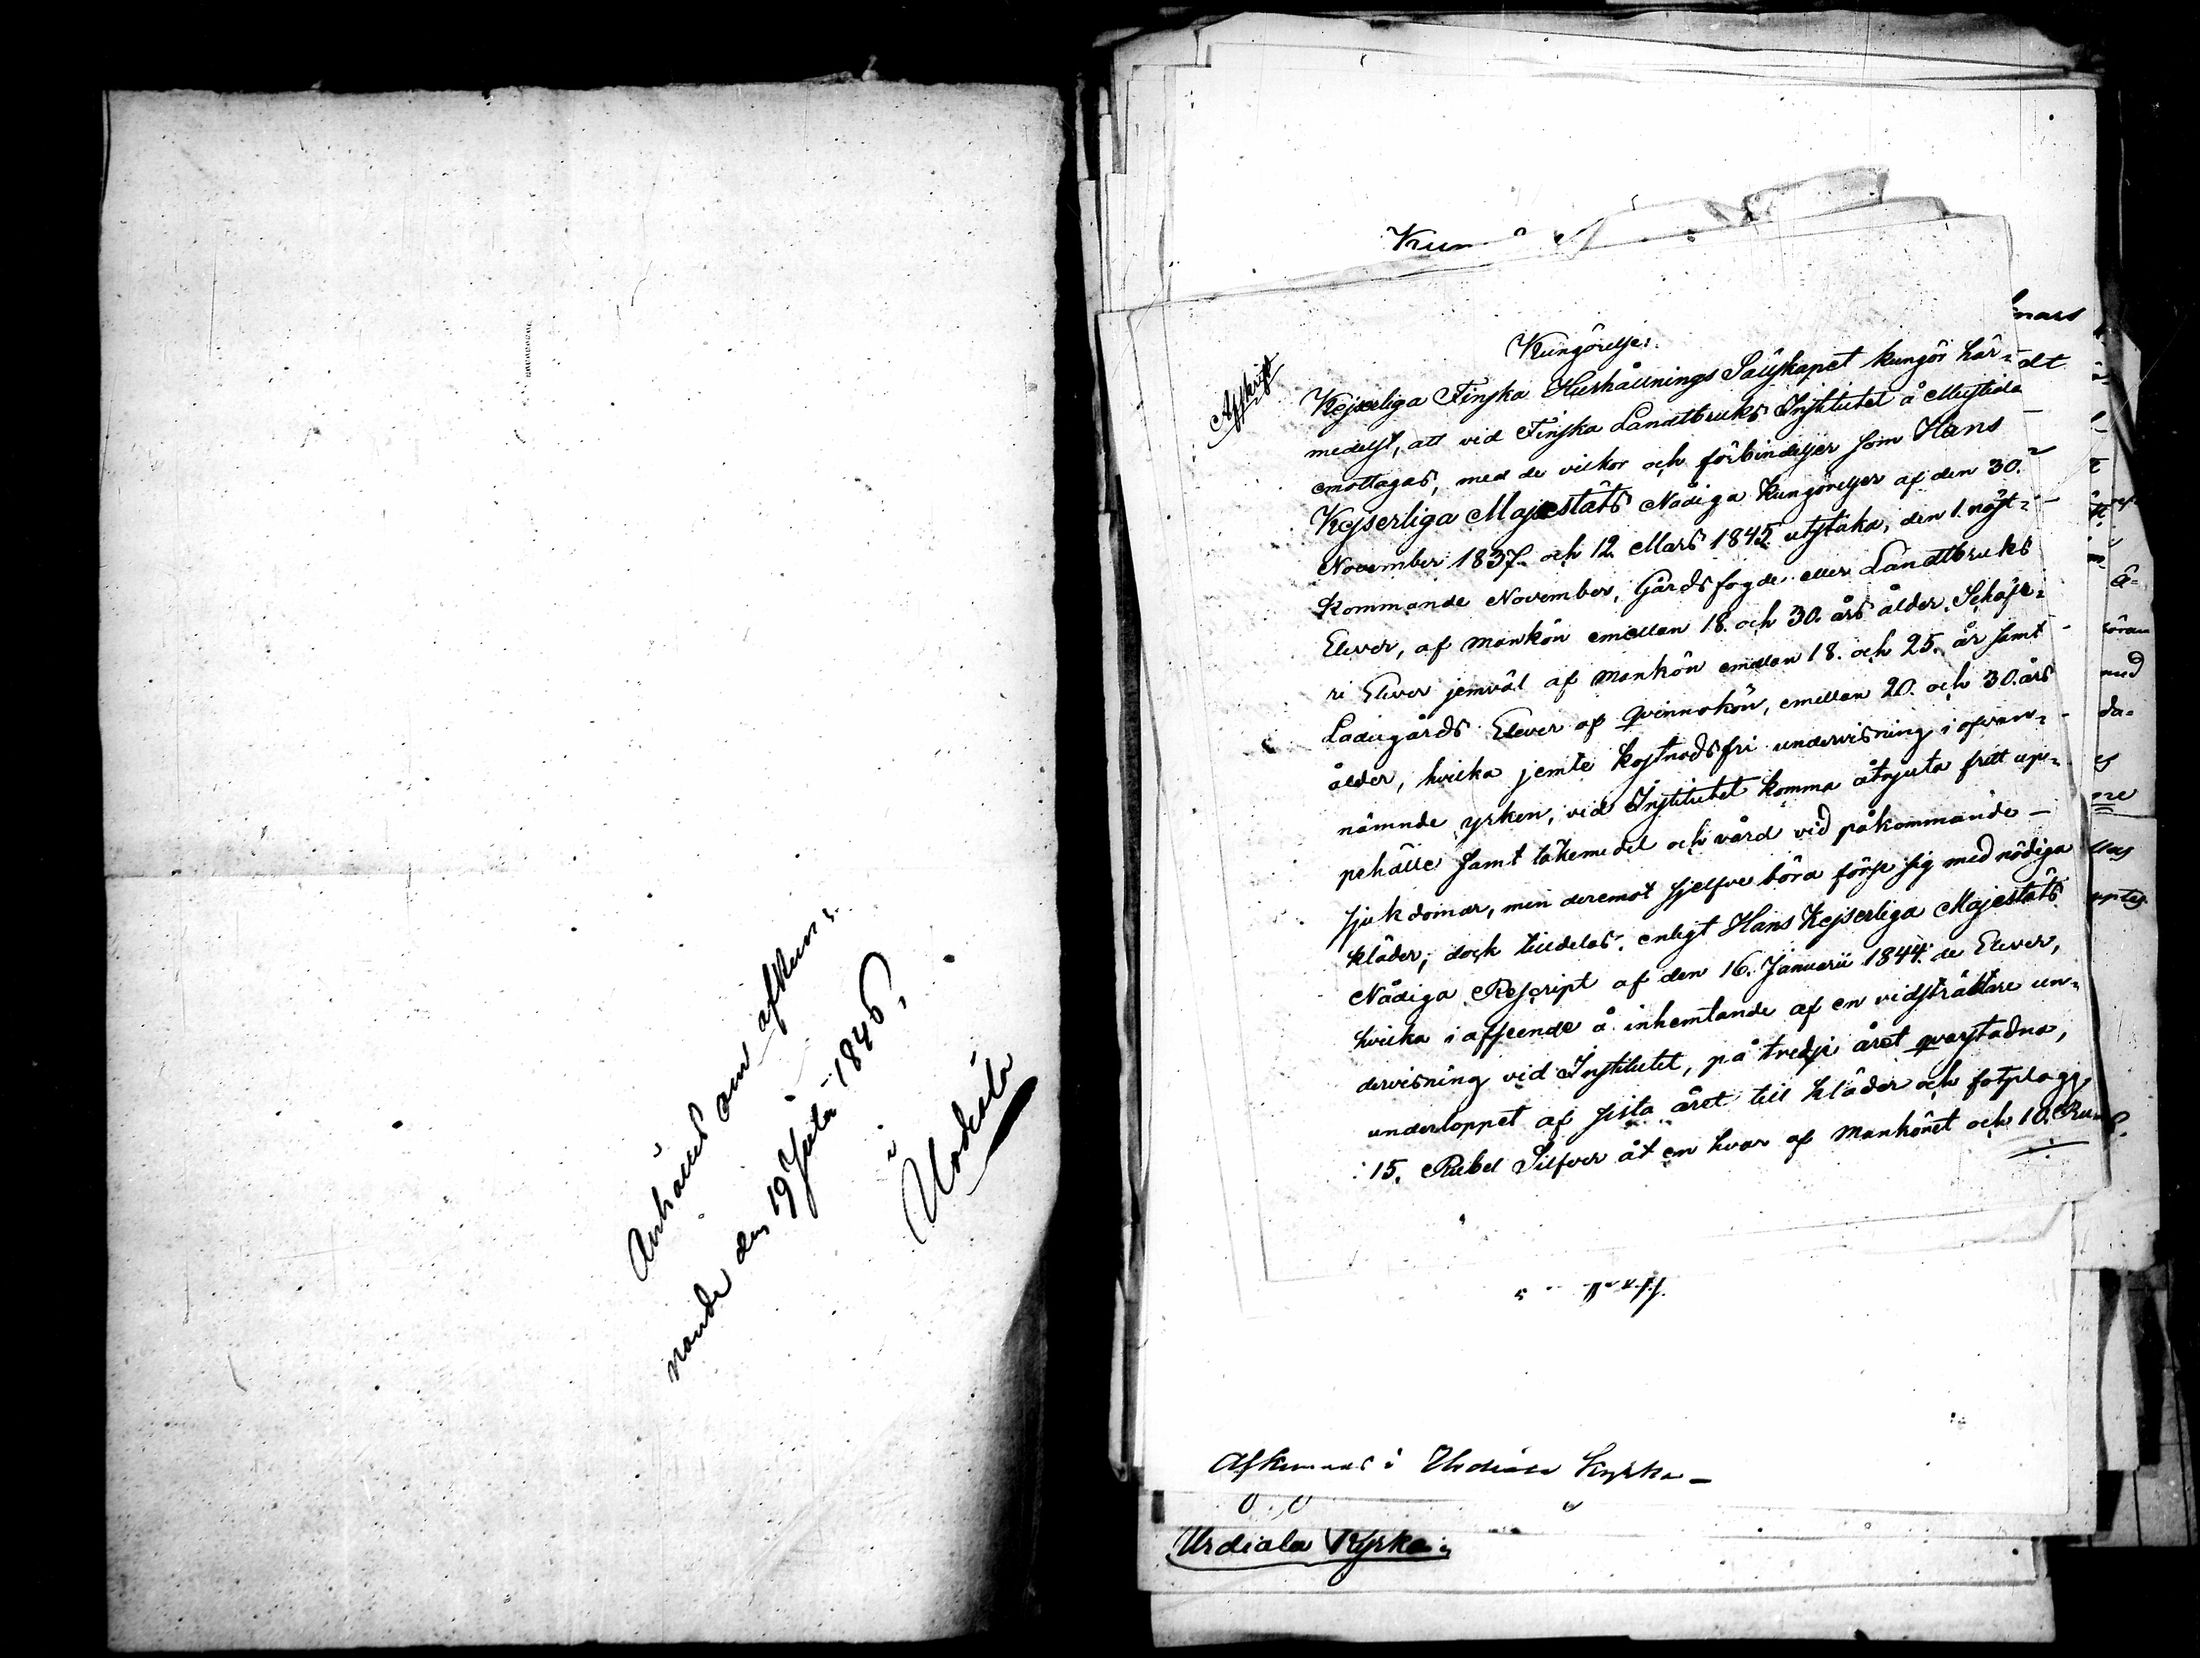 Anhålles om afkun¬
nande den 19 Julii 1846,
i
Urdiala
Afskrift
Kungörelse:
Kejserliga Finska Hushållnings Sällskapet kungör här¬
medelst, att vid Finska Landtbruks Institutet å Mustiala
emottagas, med de vilkor och förbindelser som Hans
Kejserliga Majestäts Nådiga Kungörelser af den 30.
November 1837. och 12. Mars 1845. utstaka, den 1. näst¬
kommande November, Gårdsfogde eller Landtbruks
Elever, af mankön emellan 18. och 30. års ålder, Schäfe¬
ri Elever jemväl af mankön emellan 18. och 25. år samt
Ladugårds Elever af qvinnokön, emellan 20. och 30. års
ålder, hvilka jemte kostnadsfri undervisning i ofvan¬
nämnde yrken, vid Institutet komma åtnjuta fritt up¬
pehälle samt läkemedel och vård vid påkommande
sjukdomar, men deremot sjelfve böra förse sig med nödiga
kläder; dock tilldelas, enligt Hans Kejserliga Majestäts
Nådiga Rescript af den 16. Januarii 1844. de Elever,
hvilka i afseende å inhemtande af en vidsträcktare un¬
dervisning vid Institutet, på tredje året qvarstadna,
underloppet af sista året till kläder och fotplagg,
15. Rubel Silfver åt en hvar af mankönet och 10. Rub
Afkunnas i Urdiala Kyrka
Urdiala Kyrka